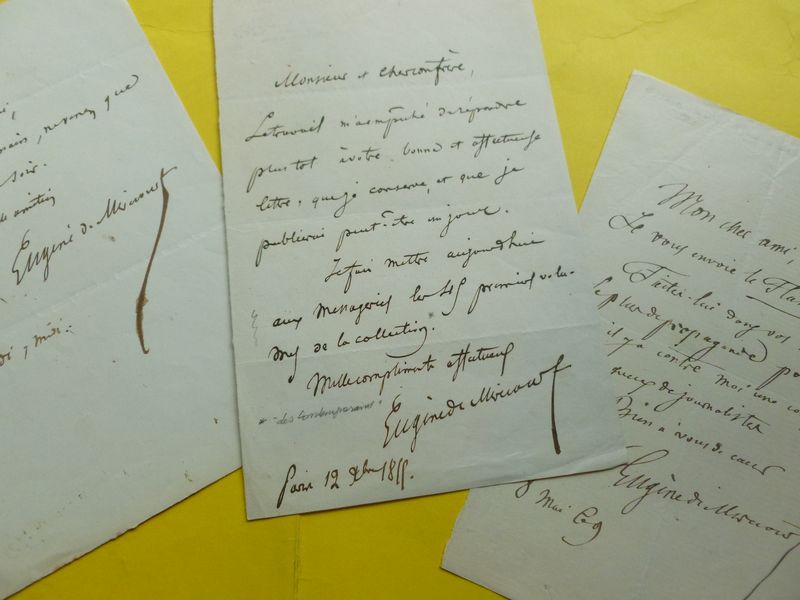 soir.
Eugène de Mirecourt
midi.
Monsieur et cher confrère,
Le travail m'a empêché de répondre
plus tôt à votre bonne et affectueuse
lettre que je conserve, et que je
publierai peut-être un jour.
Je fais mettre aujourd'hui
aux messageries les premiers volu-
mes de la collection.
Mille compliments affectueux
Eugène de Mirecourt
* les Contemporains.
Paris 12 Xbre 1855.
Mon cher ami,
Je vous envoie le
Faites-lui donc vos
le plus de propagande
il y a contre moi une
de journalistes
Bien à vous de cœur
Eugène de Mirecourt
Mai